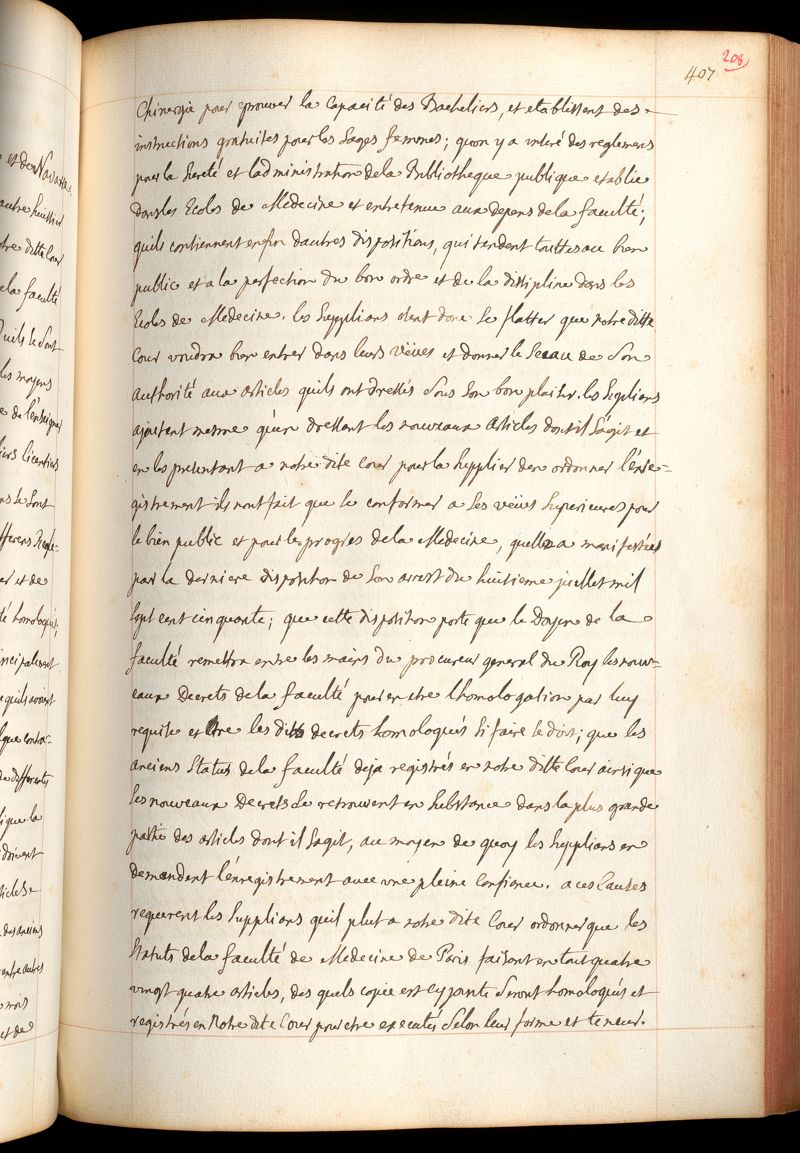 208
407
Chirurgie pour eprouver la Capacité des Bacheliers, et etablissent des
instructions gratuites pour les Sages femmes; quon y a inseré des reglemens
pour la Sureté et ladministration de la Bibliotheque publique etablie
dans les Ecoles de Medecine et entretenue aux depens de la faculté;
quils contiennent enfin dautres dispositions, qui tendent touttes au bien
public et a la perfection du bon ordre et de la dissipline dans les
Ecoles de Medecine. les Supplians osent donc se flatter que notre ditte
Cour voudra bien entrer dans leurs vëües et donner le Sceau de Son
authorité aux articles quils ont dressés Sous Son bon plaisir. les Suplians
ajoutent mesme qu'en dressant les nouveaux articles dont il S'agit et
en les presentant a notre dite Cour pour la Supplier den ordonner l'enre-
gistrement ils nont fait que se conformer a Ses vëües Superieures pour
le bien public et pour les progres de la Medecine, quelle a manifestées
par la derniere disposition de Son arrest du huitieme juillet mil
Sept cent cinquante; que cette disposition porte que le Doyen de la
faculté remettra entre les mains du procureur general du Roy les nouv-
eaux Decrets de la faculté pour en etre l'homologation par luy
requise et etre les dits decrets homologués Si faire se doit; que les
anciens Status de la faculté deja registrés en notre ditte Cour ainsi que
les nouveaux Decrets Se retrouvent en Substance dans la plus grande
partie des articles dont il Sagit, au moyen de quoy les Supplians en
demandent l'enregistrement avec une pleine Confiance. a ces Causes
requerent les Supplians quil plut a notre dite Cour ordonner que les
Statuts de la faculté de Medecine de Paris faisant en tout quatre
vingt quatre articles, des quels copie est cy jointe Seront homologués et
registrés en Notre dite Cour pour etre executés Selon leur forme et teneur.